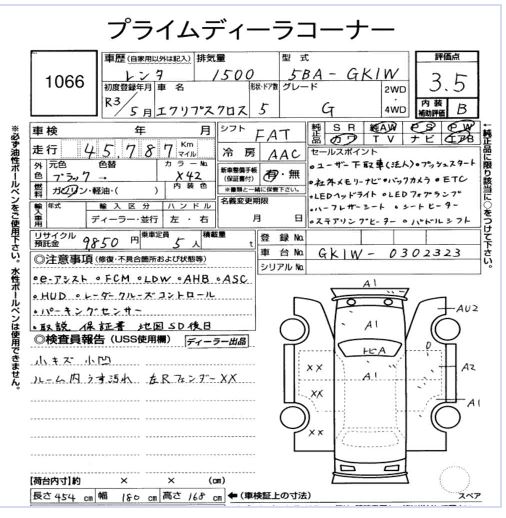 プライムディーラコーナー
1066
車歴 (自家用以外は記入) レンタ
排気量 1500
型式 5BA-GK1W
評価点 3.5
内装補助評価 B
初度登録年月 R3/5月
車名 エクリプスクロス
形状・ドア数 5
グレード G
2WD・4WD
車検 年 月
シフト FAT
純正品 SR AW PS PW カワ TV ナビ エアB
走行 45,787 Km マイル
冷房 AAC
セールスポイント
・ユーザー下取車(法人)・プッシュスタート
・社外メモリーナビ・バックカメラ・ETC
・LEDヘッドライト・LEDフォグランプ
・ハーフレザーシート・シートヒーター
・ステアリングヒーター・パドルシフト
外色 元色 ブラック→ 色替 カラーNo. X42
新車整備手帳(保証書付) 有・無
※書類と一緒に保管下さい。
燃料 ガソリン・軽油・( )
内装色
名義変更期限 月 日
輸入車用 年式 輸入区分 ハンドル
ディーラー・並行 左・右
リサイクル預託金 9850円
乗車定員 5人
積載量 t
登録No.
車台 GK1W-0302323
シリアルNo.
◎注意事項 (修復・不具合箇所および状態等)
・e-アシスト ・FCM ・LDW ・AHB ・ASC
・HUD ・レーダークルーズコントロール
・パーキングセンサー
・取説 保証書 地図SD後日
◎検査員報告 (USS使用欄) ディーラー出品
小キズ 小凹
ルーム内うす汚れ 左Rフェンダー XX
A1
A1
AU2
トビA
A1
XX
XX
XX
A2
A1
【荷台内寸】約 × × (cm)
長さ 454 cm 幅 180 cm 高さ 168 cm ←(車検証上の寸法)
スペア
※必ず油性ボールペンをご使用下さい。水性ボールペンは使用できません。
←純正品に限り該当に○をつけて下さい。